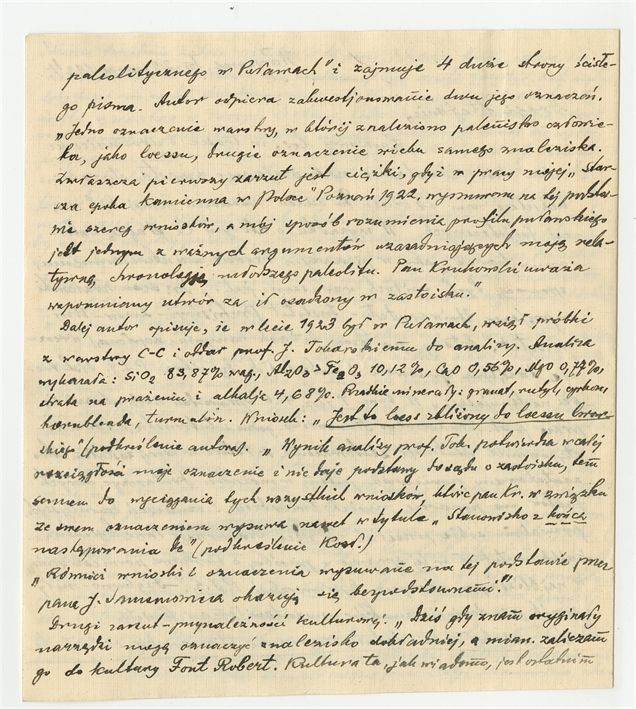 paleolitycznego w Puławach" i zajmuje 4 duże strony ścisłe-
go pisma. Autor odpiera zakwestjonowanie dwu jego oznaczeń.
„Jedno oznaczenie warstwy, w której znaleziono palenisko człowie-
ka, jako loessu, drugie oznaczenie wieku samego znaleziska.
Zwłaszcza pierwszy zarzut jest ciężki, gdyż w pracy mojej „Star-
sza epoka kamienna w Polsce" Poznań 1922, wysunąłem na tej podsta-
wie szereg wniosków, a mój sposób rozumienia profilu puławskiego
jest jednym z ważnych argumentów uzasadniających moją rela-
tywną chronologję młodszego paleolitu. Pan Krukowski uważa
wspomniany utwór za ił osadzony w zastoisku."
Dalej autor opisuje, że w lecie 1923 był w Puławach, wziął próbki
z warstwy C-C i oddał prof J. Tokarskiemu do analizy. Analiza
wykazała: SiO2 83,87% wag., Al2O3 > Fe2O3 10,12%, CaO 0,56%, MgO 0,77%,
strata na prażeniu i alkalja 4,68%. Rzadkie minerały: granat, rutyl, cyrkon,
hornblenda, turmalin. Wniosek: „Jest to loess zbliżony do loessu lwow-
skiego" (podkreślenie autora). „Wynik analizy prof. Tok. potwierdza w całej
rozciągłości moje oznaczenie i nie daje podstawy do sądu o zastoisku, tem
samem do wyciągania tych wszystkich wniosków, które pan Kr. w związku
ze swem oznaczeniem wysuwa nawet w tytule „Stanowisko z końca
następowania
(podkreślenie Kozł.)
„Również wnioski i oznaczenia wysuwane na tej podstawie przez
pana J. Samsonowicza okazują się bezpodstawnemi."
Drugi zarzut - przynależność kulturowej. „Dziś gdy znam oryginały
narzędzi mogę oznaczyć znalezisko dokładniej, a mian. zaliczam
go do kultury Font Robert. Kultura ta, jak wiadomo, jest ostatnim